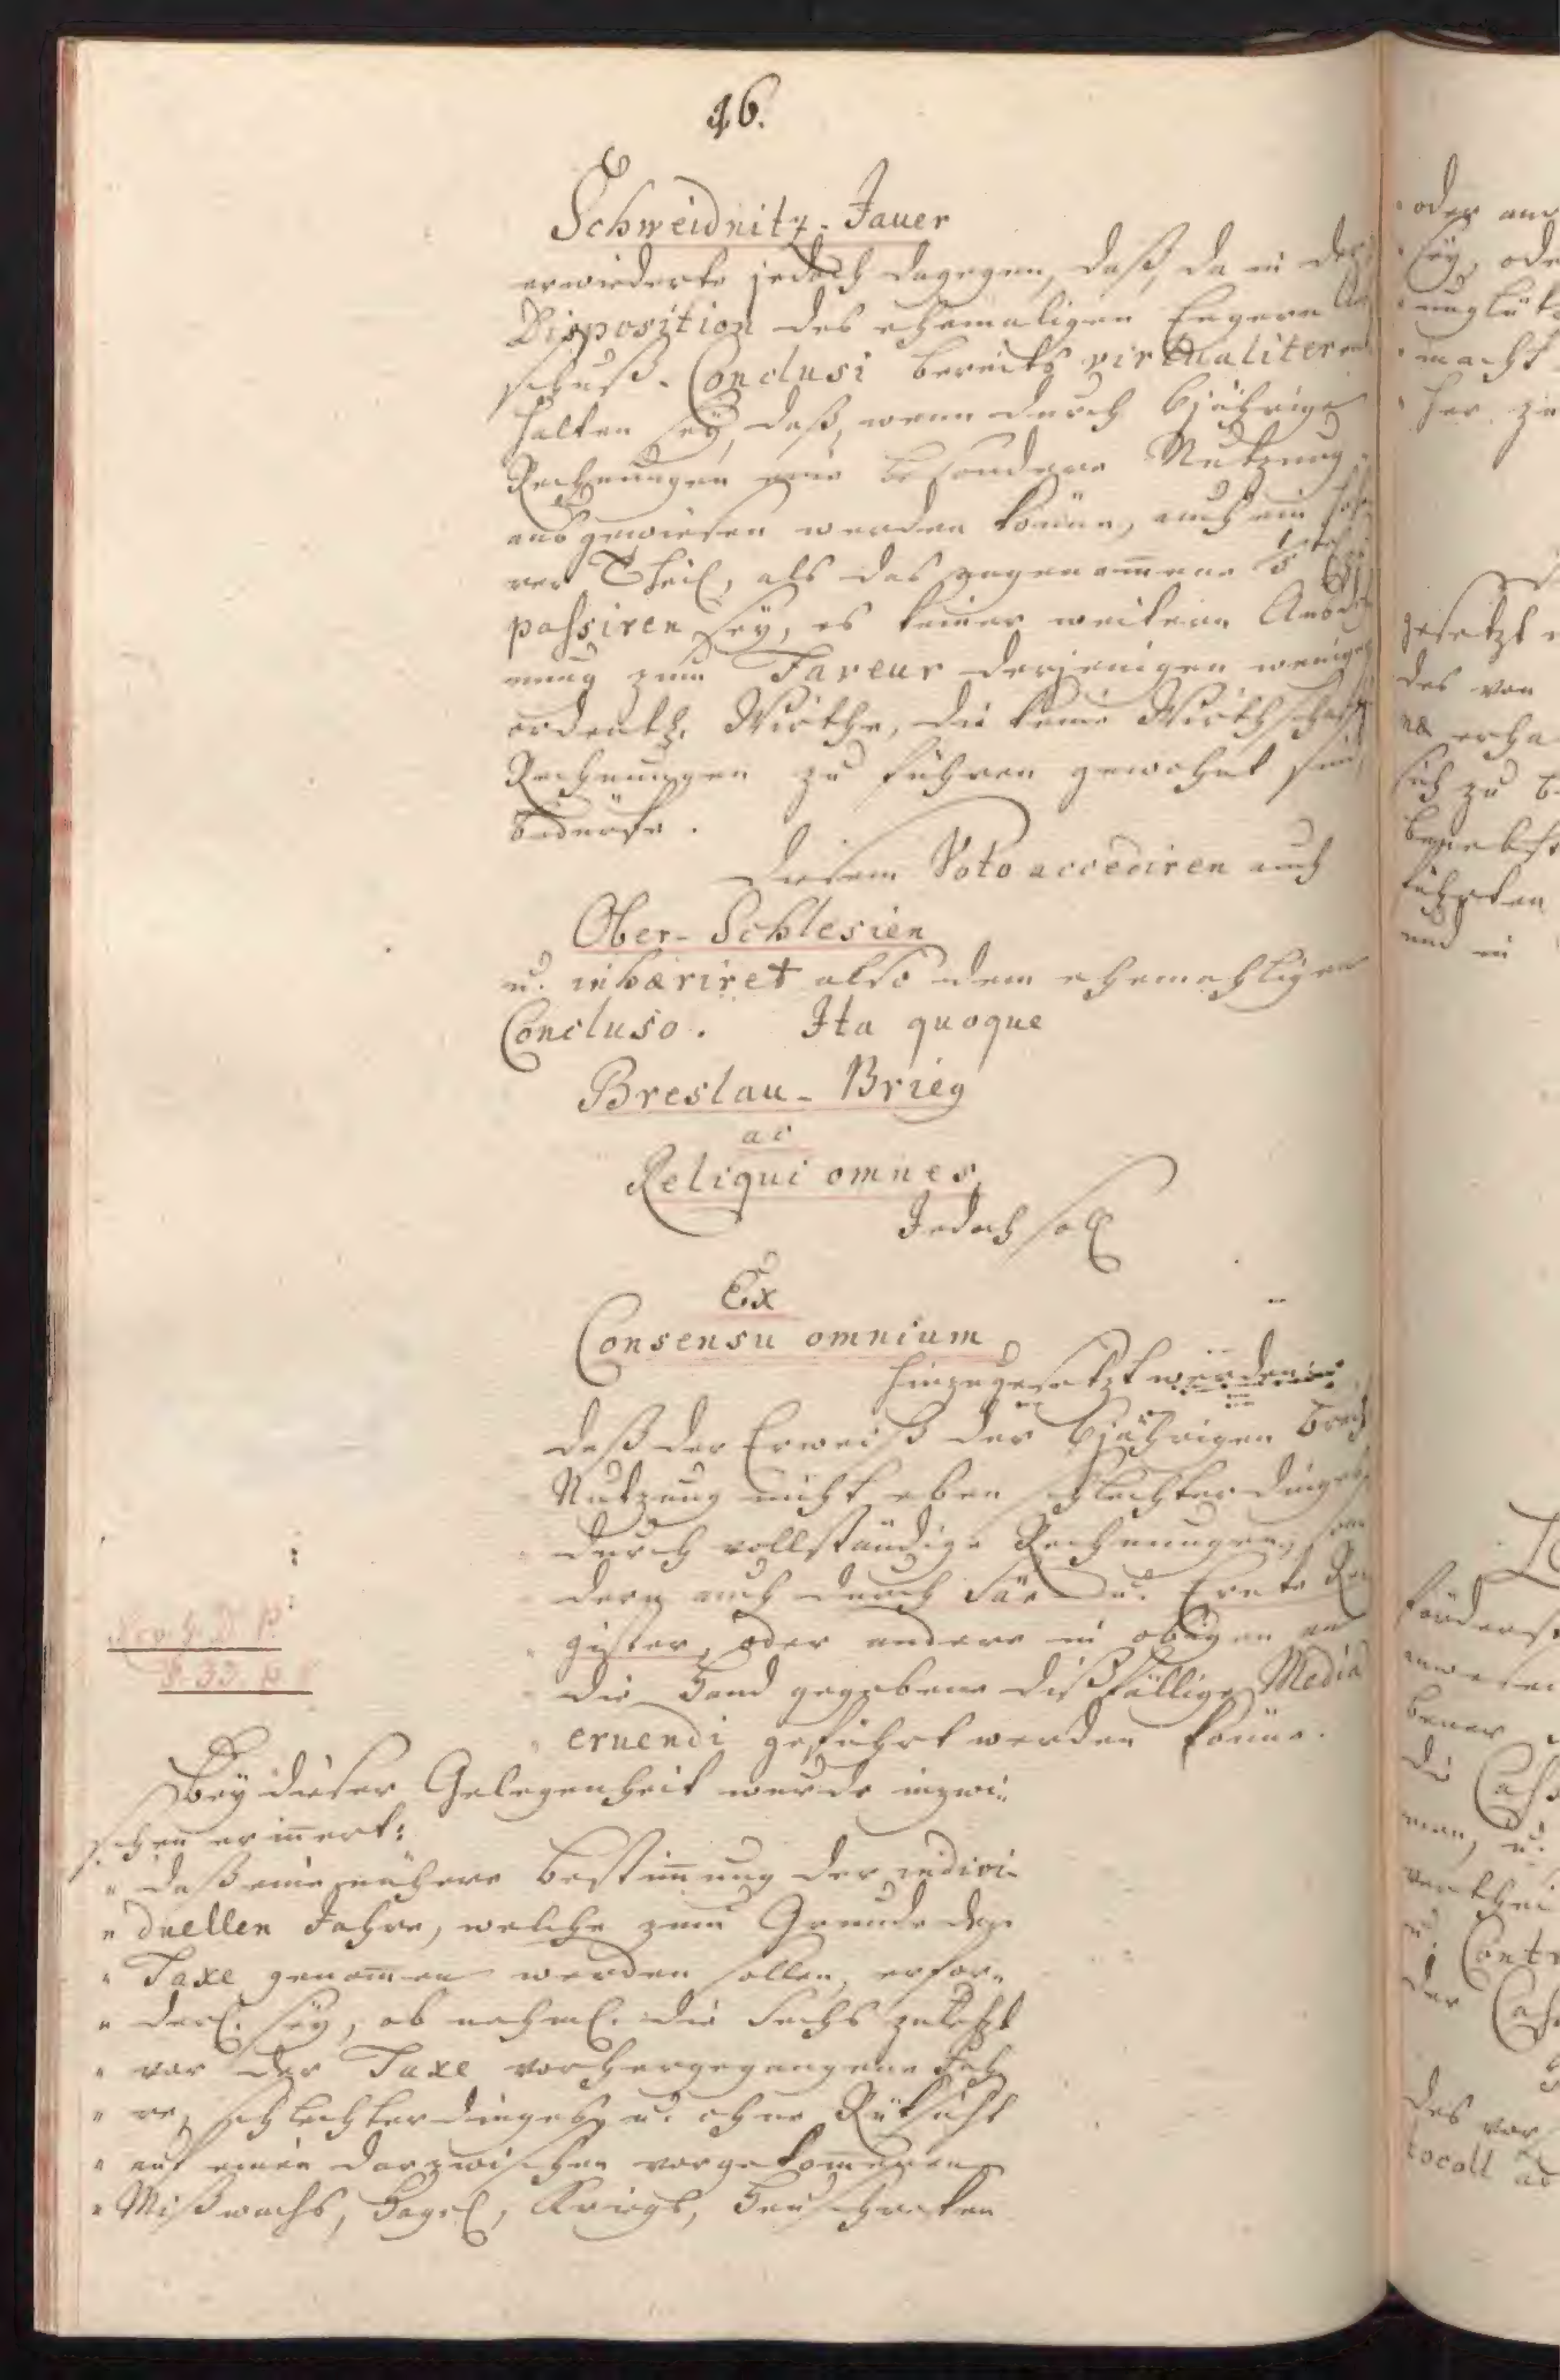 46.
Schweidnitz-Jauer
erwiederte jedoch dagegen, daß, da in der
Disposition des ehemaligen Engern Aus
schuß-Conclusi bereits virtualiter ent
halten seÿ, daß, wenn durch 6jährige
Rechnungen eine besondere Nutzung
ausgewiesen werden könne, auch ein höhe
rer Theil, als das angenom̄ene zu
passiren seÿ, es keiner weitern Ausdeh
nung zum Faveur derjenigen weniger
ordentl. Wirthe, die keine Wirthschafts
Rechnungen zu führen gewohnt sind,
bedürfe.
Diesem Voto accediren auch
Ober-Schlesien
u. inhæriret also dem ehemahligen
Concluso. Ita quoque
Breslau-Brieg
ac
Reliqui omnes,
Jedoch soll
Ex
Consensu omnium
hinzugesetzt werden:
daß der Erweiß der 6jährigen Brach
Nutzung nicht eben schlechterdings
durch vollständige Rechnungen, son
dern auch durch Säe- u. Ernte Re
gister, oder andere in obigen an
die Hand gegebene dißfällige Media
eruendi geführt werden könne.
Beÿ dieser Gelegenheit wurde inzwi-
schen erinnert:
" daß eine nähere Bestim̄ung der indivi-
" duellen Jahre, welche zum Grunde der
" Taxe genom̄en werden sollen, erfor-
" derl. seÿ, ob nehml. die sechs zuletzt
" vor der Taxe vorhergegangene Jah
" re, schlechterdings u. ohne Rüksicht
" auf einen darzwischen vorgekom̄enen
" Mißwachs, Hagel, Kriegs, Heuschrecken